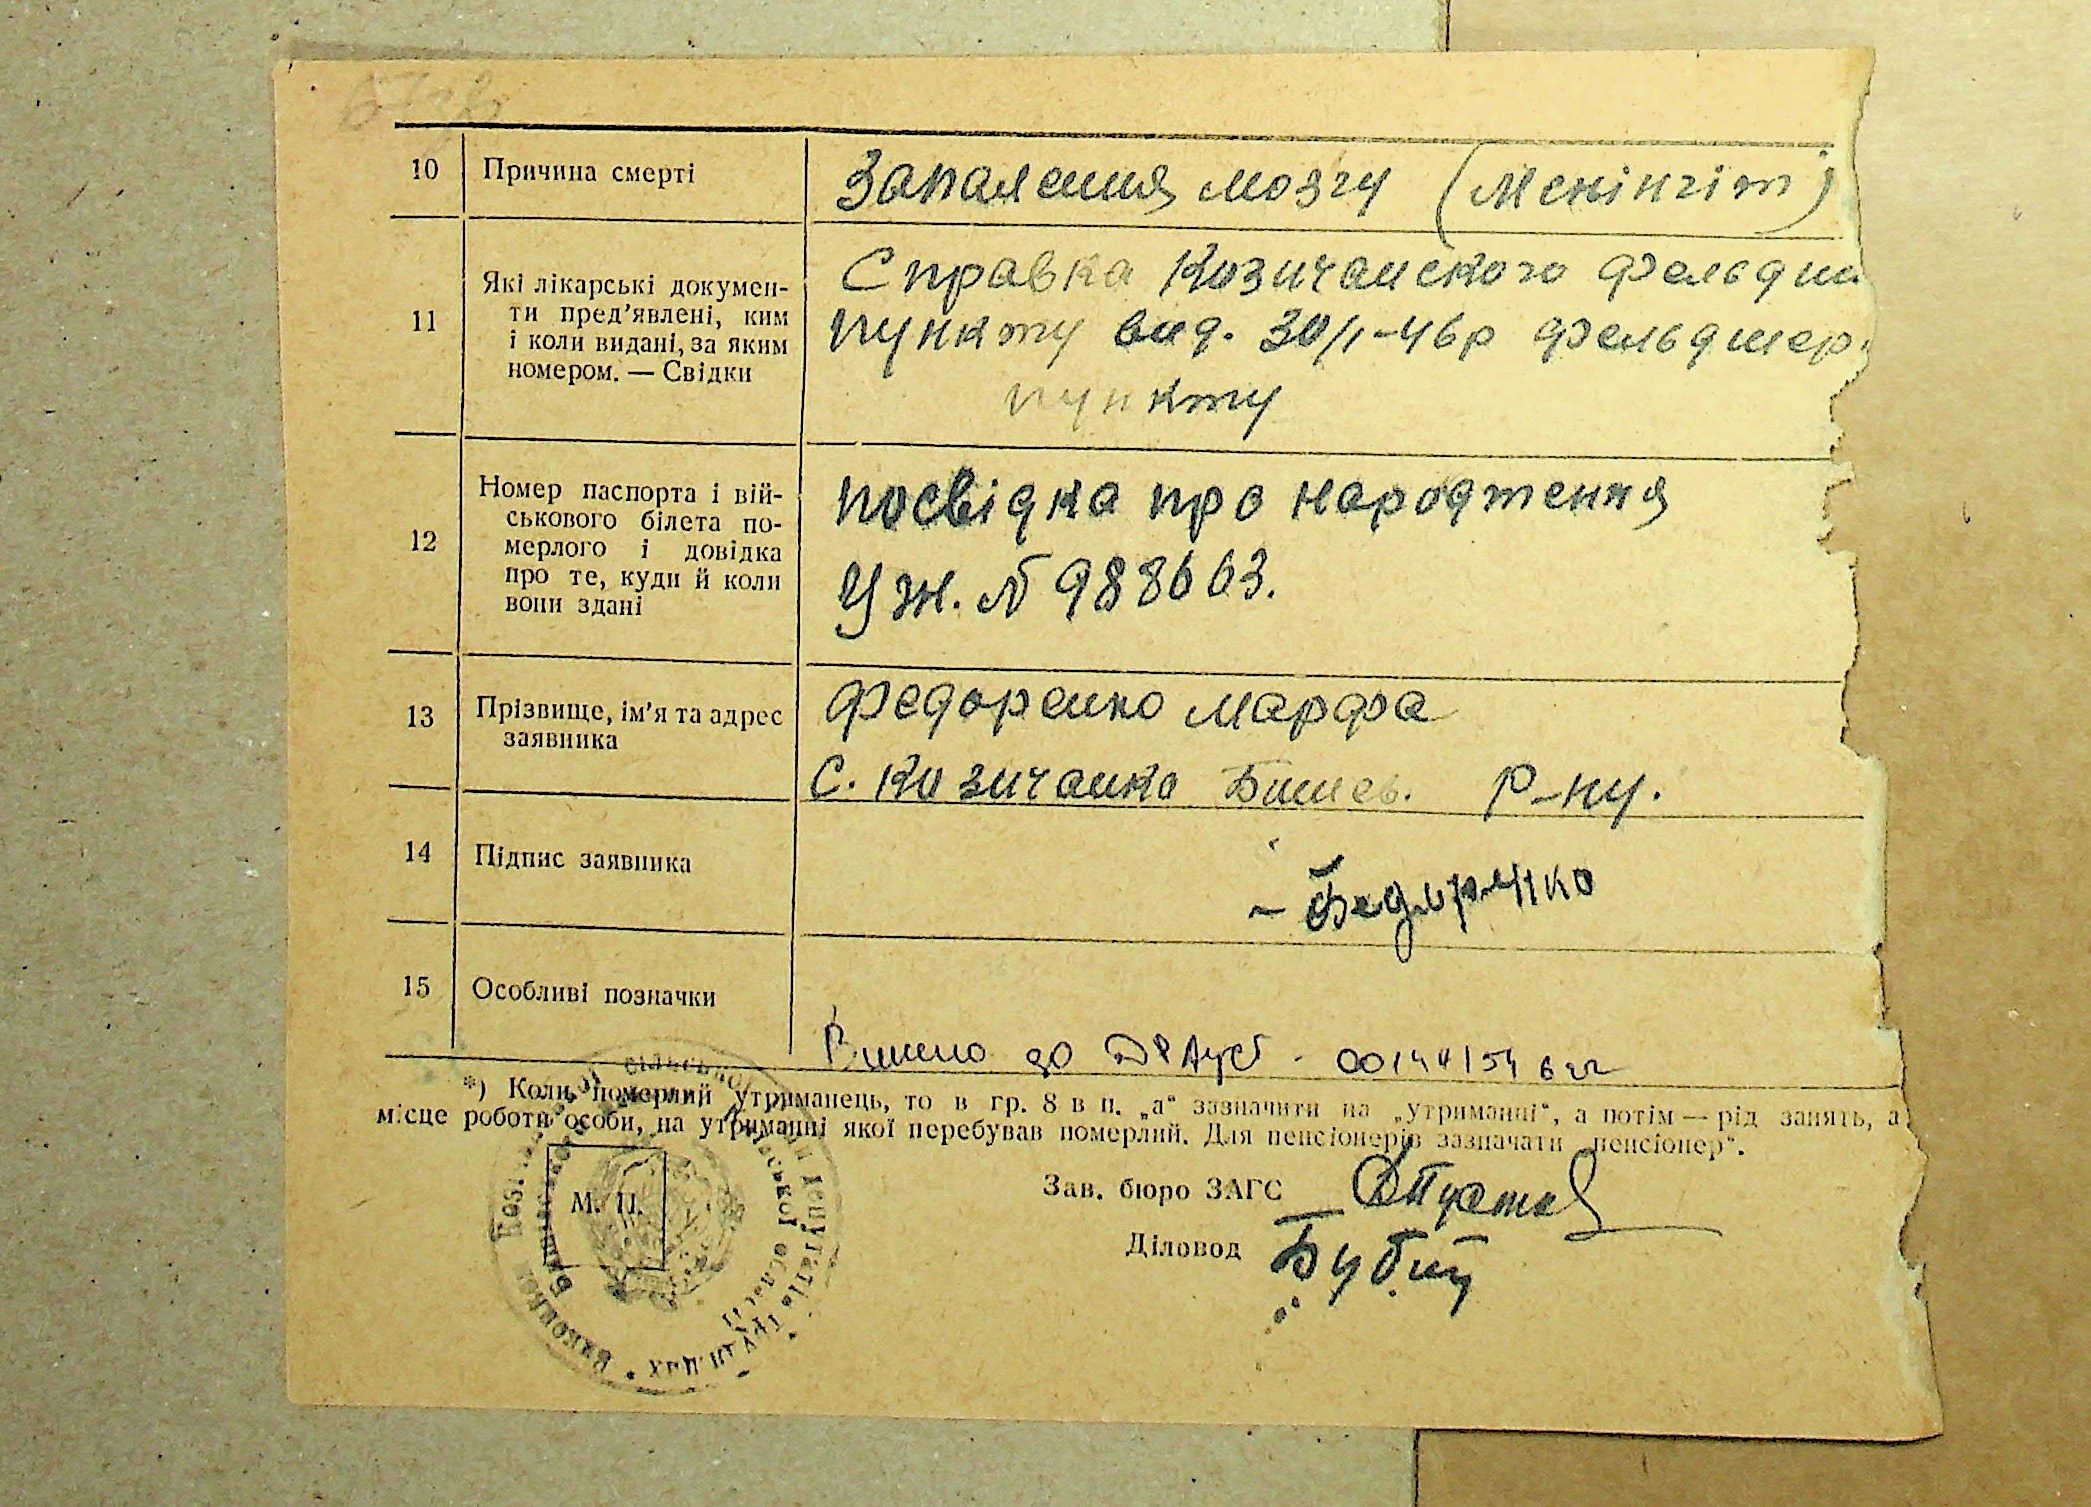 10 Причина смерті
Запалення мозгу (Менінгіт)
11 Які лікарські докумен-
ти пред'явлені, ким
і коли видані, за яким
номером. — Свідки
Справка Козичанского фельдш
пункту вид. 30/1-46р фельдшер.
пункту
12 Номер паспорта і вій-
ськового білета по-
мерлого і довідка
про те, куди й коли
вони здані
посвідка про народження
УЖ. № 988663.
13 Прізвище, ім'я та адрес
заявника
Федоренко Марфа
с. Козичанка Бишев. р-ну.
14 Підпис заявника
- Федоренко
15 Особливі позначки
Внесено до ДРАЦСГ 00144154622
*) Коли померлий утриманець, то в гр. 8 в п. „а" зазначити на „утриманні", а потім — рід занять, а
місце роботи особи, на утриманні якої перебував померлий. Для пенсіонерів зазначати „пенсіонер".
М. П.
Зав. бюро ЗАГС
Діловод